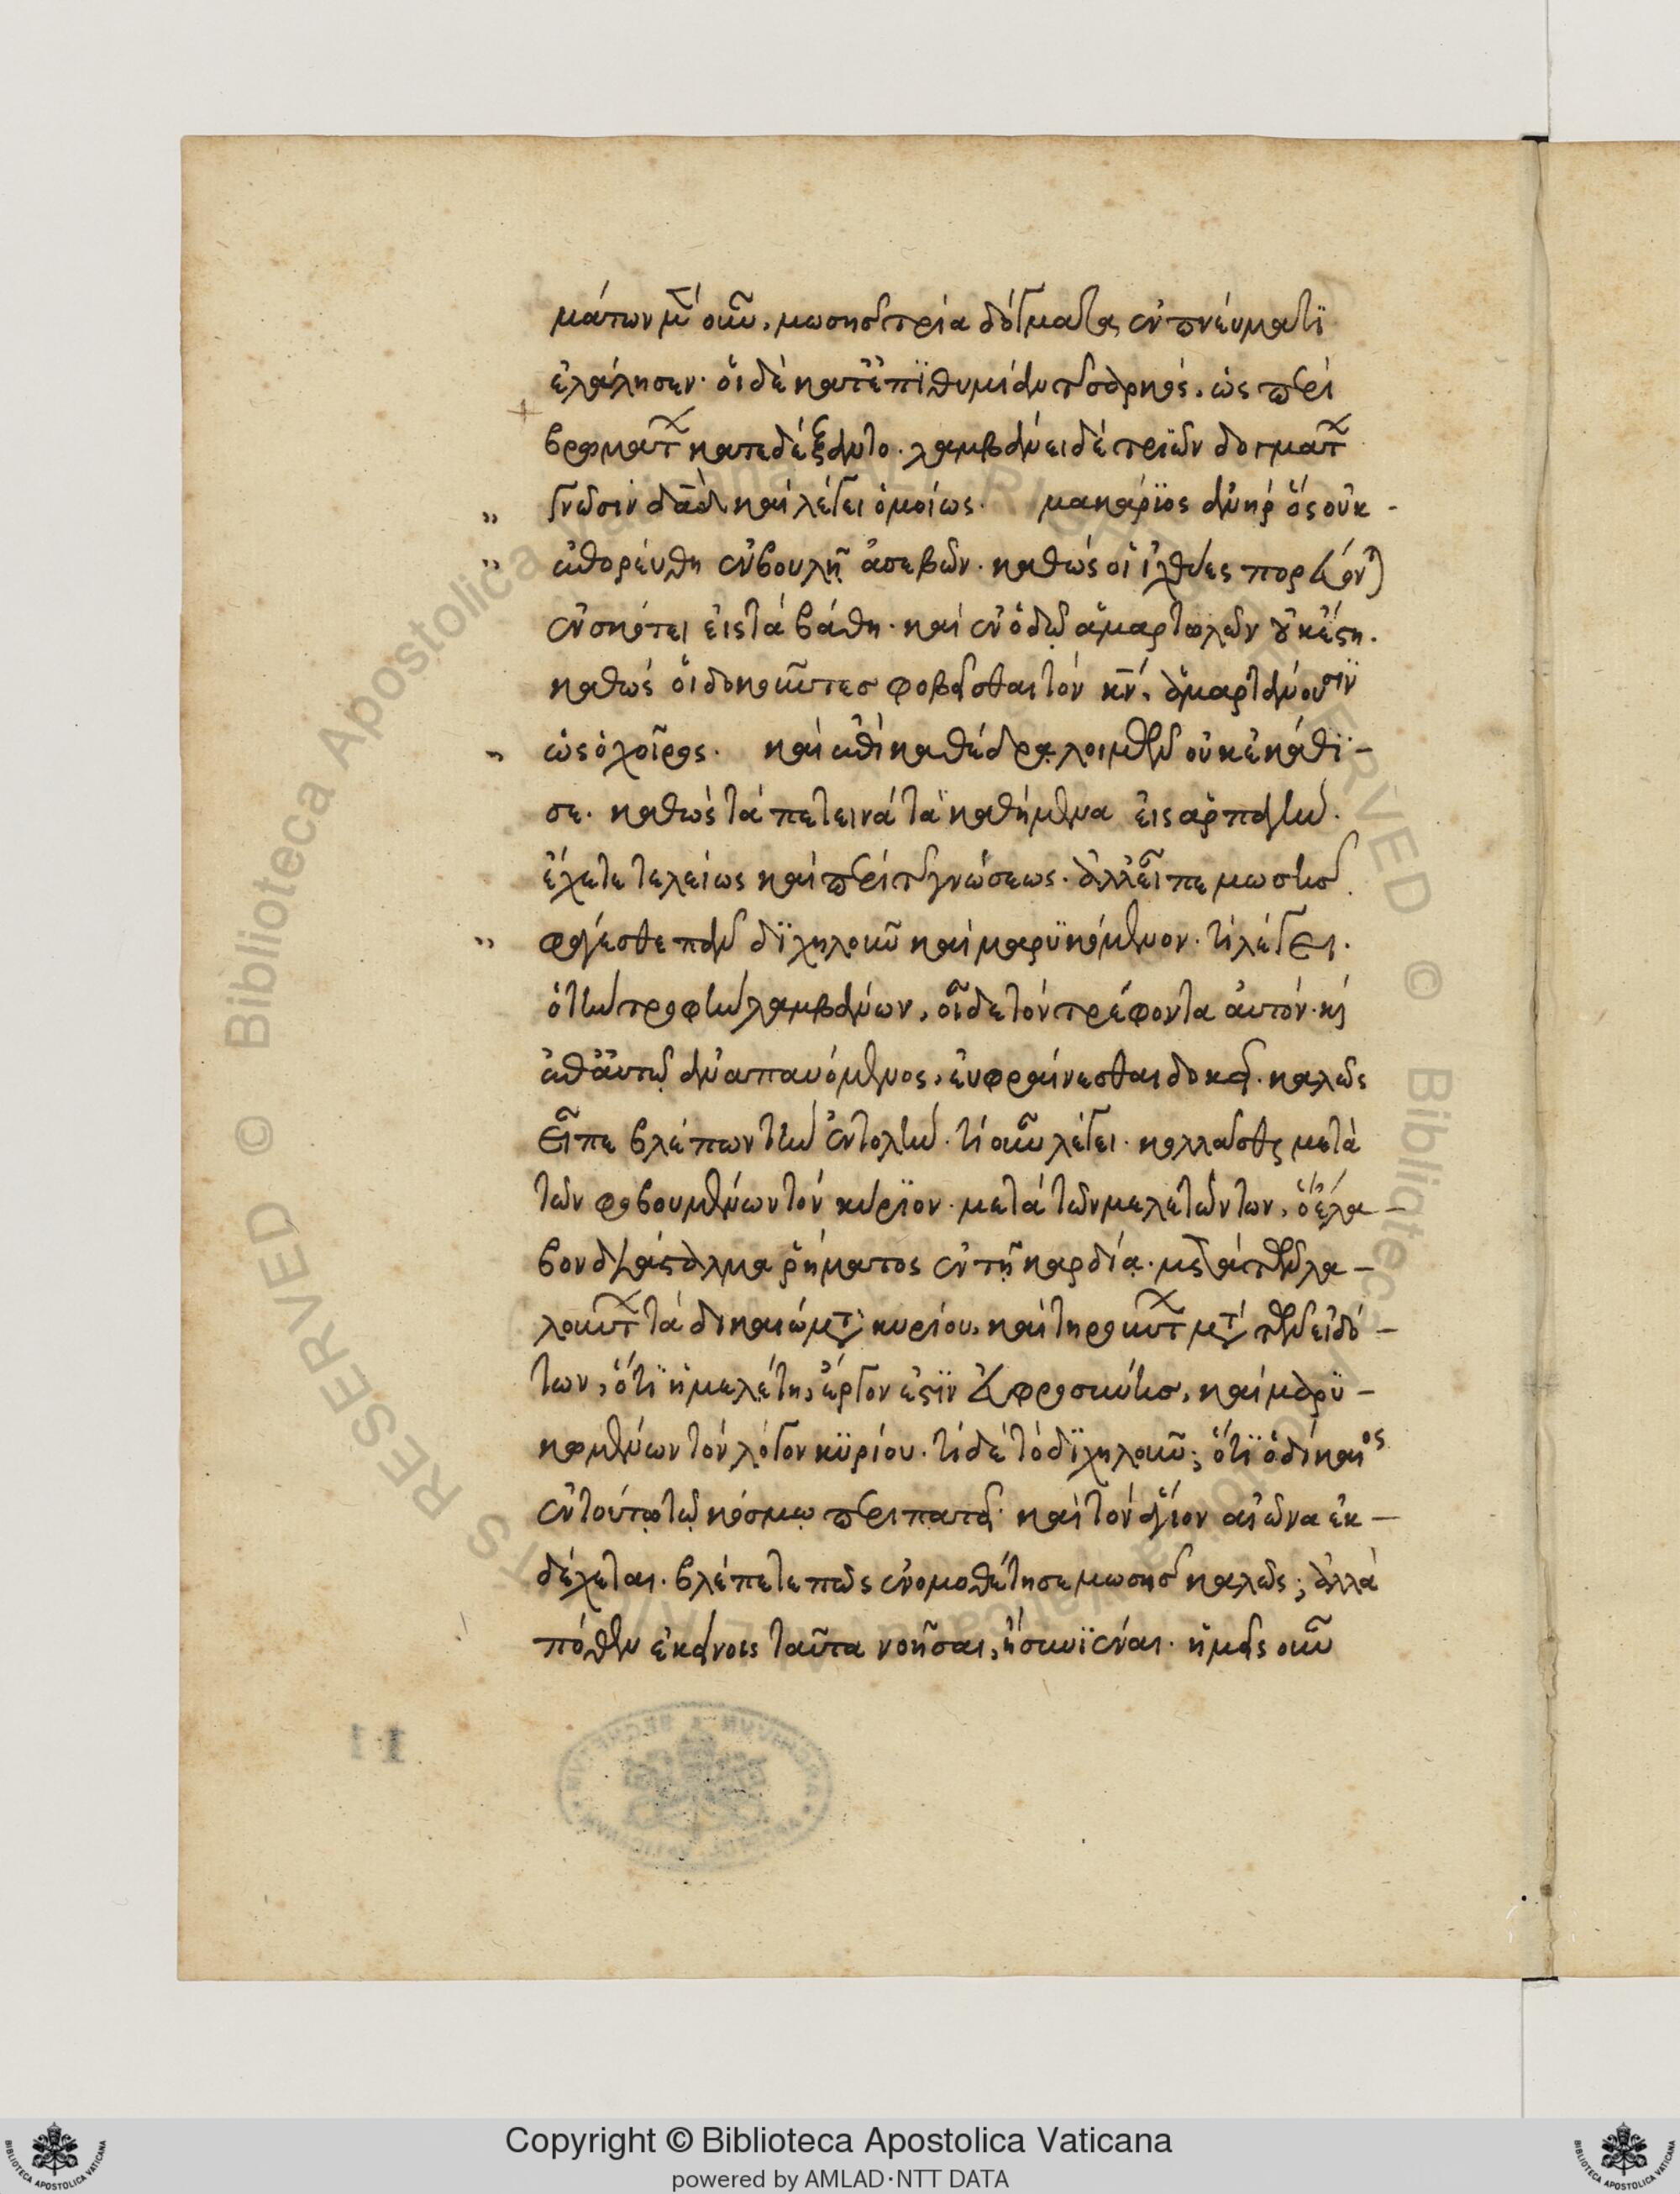 μάτων μὲν οὖν, μωσης τρία δόγματα ἐν πνεύματϊ
ἐλάλησεν· ὁι δὲ κατ ἐπϊθυμίαν τῆς σαρκός, ὡς περὶ
βρωμάτων κατεδέξαντο. λαμβάνει δὲ τριῶν δογμάτων
γνῶσιν δαδ καὶ λέγει ὁμοίως. μακάρϊος ἀνὴρ ὃς οὐκ -
ἐπορέυθη ἐν βουλῇ ἀσεβῶν. καθὼς οἱ ἰχθύες πορεύονται
ἐν σκότει ἐις τὰ βάθη. καὶ ἐν ὁδῷ ἁμαρτωλῶν οὐκ ἔστη.
καθὼς ὁι δοκοῦντες φοβεῖσθαι τὸν κν, ἁμαρτάνουσϊν
ὡς ὁ χοῖρος. καὶ ἐπὶ καθέδρα λοιμῶν οὐκ ἐκάθϊ-
σε. καθὼς τὰ πετεινὰ τὰ καθήμενα ἐις ἁρπαγήν.
ἔχετε τελείως καὶ περὶ τῆς γνώσεως. ἀλλ εἶπε μωσῆς
φάγεσθε πᾶν δϊχηλοῦν καὶ μαρϋκώμενον. τί λέγει.
ὁ τὴν τροφὴν λαμβάνων, οἶδε τὸν τρέφοντα ἀυτόν. καὶ
ἐπ ἀυτῷ ἀναπαυόμενος, ἐυφραίνεσθαι δοκεῖ. καλῶς
εἶπε βλέπων τὴν ἐντολήν. τί οὖν λέγει. κολλᾶσθε μετὰ
τῶν φοβουμένων τὸν κύρϊον. μετὰ τῶν μελετώντων, ὃ ἔλα-
βον διάσταλμα ῥήματος ἐν τῇ καρδίᾳ. μετὰ τῶν λα-
λούντων τὰ δικαιώματα κυρίου, καὶ τηρούντων μετὰ τῶν εἰδό-
των, ὅτϊ ἡ μελέτη, ἔργον ἐστϊν ἐυφροσύνης, καὶ μαρϋ-
κωμένων τὸν λόγον κϋρίου. τί δὲ τὸ δϊχηλοῦν; ὅτϊ ὁ δίκαιος
ἐν τούτῳ τῷ κόσμῳ περιπατεῖ· καὶ τὸν ἅγιον αἰῶνα ἐκ-
δέχεται. βλέπετε πῶς ἐνομοθέτησε μωσης καλῶς; ἀλλὰ
πόθεν ἐκείνοις ταῦτα νοῆσαι, ἢ συνϊέναι. ἡμεῖς οὖν
11
Copyright © Biblioteca Apostolica Vaticana
powered by AMLAD·NTT DATA